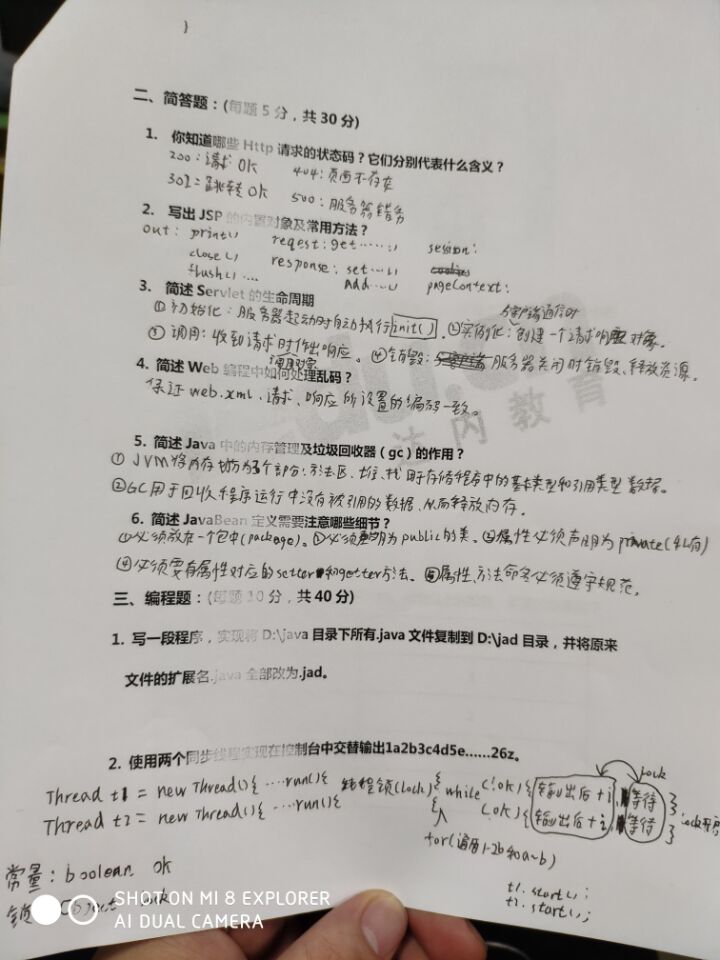 }
二、简答题：(每题 5 分，共 30 分)
1. 你知道哪些 Http 请求的状态码？它们分别代表什么含义？
200：请求 OK 404：页面不存在
302=跳转 OK 500：服务器错务
2. 写出 JSP 的内置对象及常用方法？
out: print() reqest: get……() session:
close() response: set…() cookies
flush()… add…() pageContext:
3. 简述 Servlet 的生命周期
①初始化：服务器起动时自动执行init()。②实例化：创建一个请求响应对象。
③调用：收到请求时作出响应。④销毁：服务器关闭时销毁、释放资源。
调用对象
4. 简述 Web 编程中如何处理乱码？
保证 web.xml、请求、响应所设置的编码一致。
达内教育
5. 简述 Java 中的内存管理及垃圾回收器（gc）的作用？
① JVM将内存切为3个部分：方法区、堆、栈 用于存储程序中的基本类型和引用类型数据。
②GC用于回收程序运行中没有被引用的数据、从而释放内存.
6. 简述 JavaBean 定义需要注意哪些细节？
①必须放在一个包中(package)。②必须声明为public的类。③属性必须声明为private(私有)
④必须要有属性对应的setter和getter方法。⑤属性、方法命名必须遵守规范。
三、编程题：(每题 10 分，共 40 分)
1. 写一段程序，实现将 D:\java 目录下所有.java 文件复制到 D:\jad 目录，并将原来
文件的扩展名.java 全部改为.jad。
2. 使用两个同步线程实现在控制台中交替输出1a2b3c4d5e……26z。
Thread t1 = new Thread(){ ····run(){ 线程锁(lock){ while (!ok){ 输出后+i, 等待 }; lock
Thread t2 = new Thread(){ ····run(){ (ok){ 输出后+i, 等待 };
for(遍历1-26和a~b)
常量: boolean ok
t1.start();
t2.start();
SHOT ON MI 8 EXPLORER
AI DUAL CAMERA